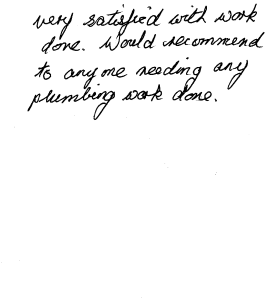 very satisfied with work
done. Would recommend
to anyone needing any
plumbing work done.